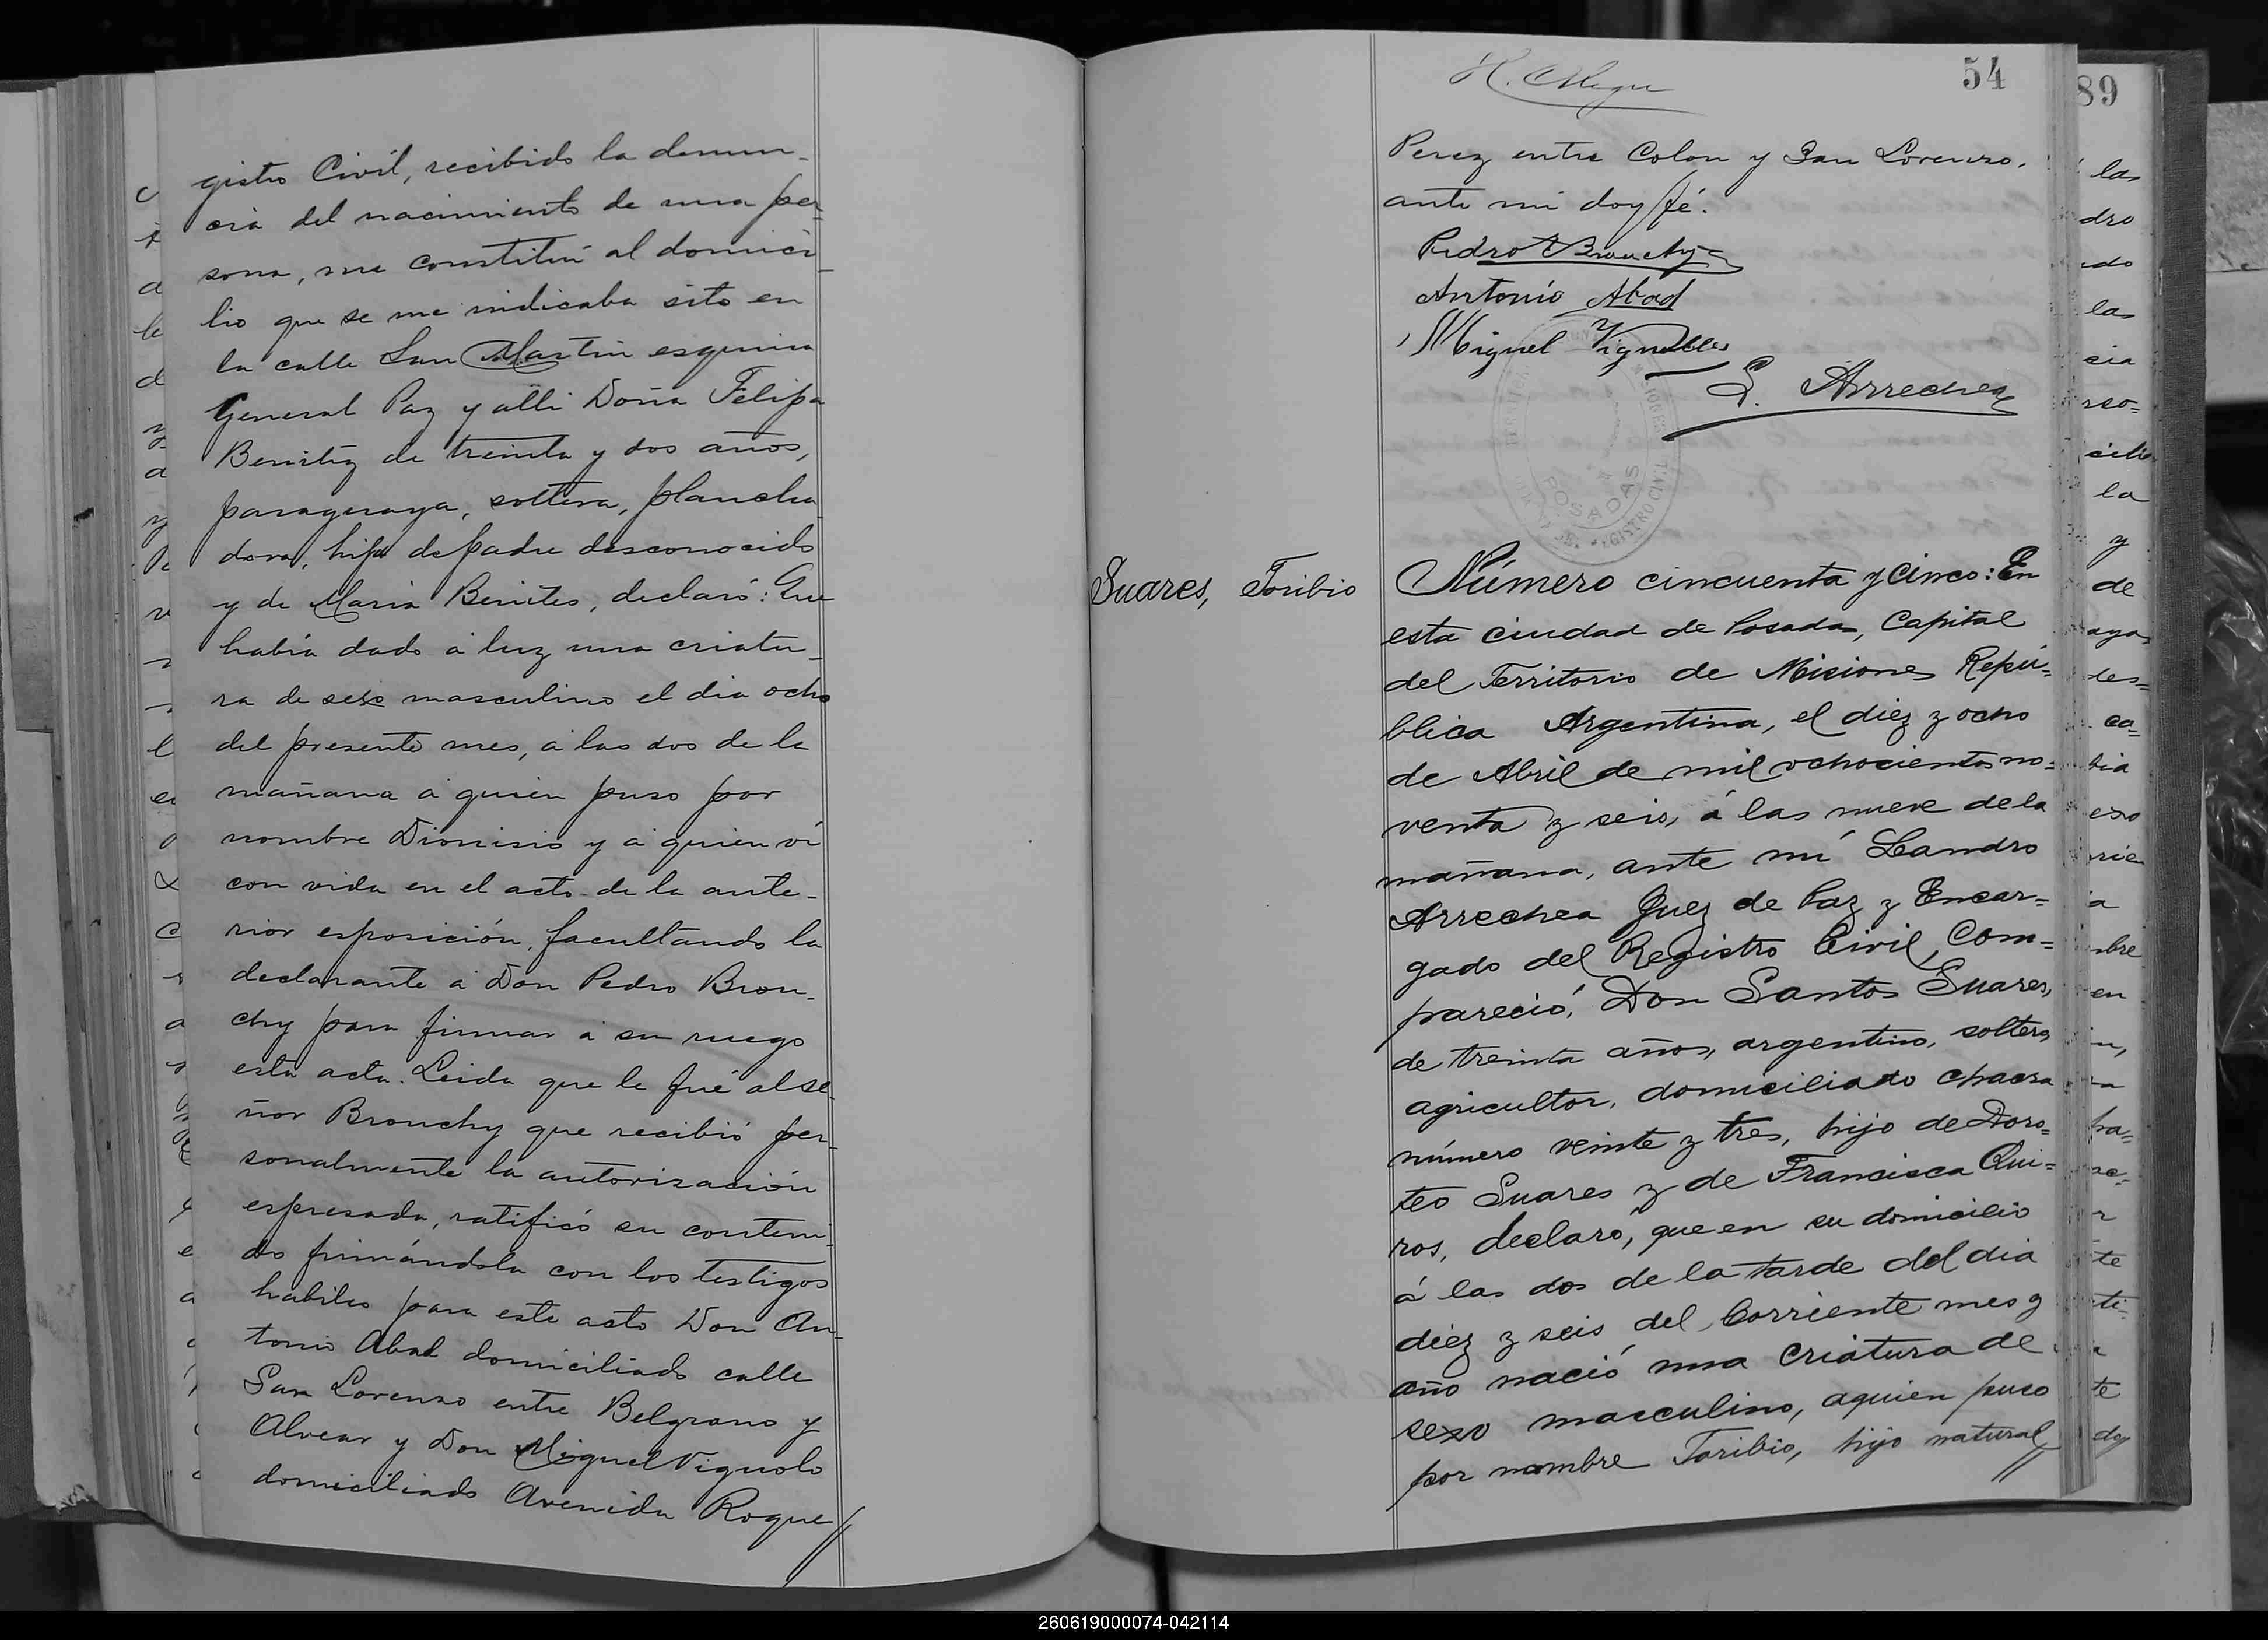 gistro Civil, recibido la denun-
cia del nacimiento de una per-
sona, me constituí al domici-
lio que se me indicaba sito en
la calle San Martin esquina
General Paz y alli Doña Felipa
Benitez de treinta y dos años,
paraguaya, soltera, plancha-
dora, hija de padre desconocido
y de Maria Benites, declaró: Que
habia dado á luz una criatu-
ra de sexo masculino el dia ocho
del presente mes, á las dos de la
mañana á quien puso por
nombre Dionisio y á quien ví
con vida en el acto de la ante-
rior esposición, facultando la
declarante á Don Pedro Brou-
chy para firmar á su ruego
esta acta. Leida que le fué al se-
ñor Brouchy que recibió per-
sonalmente la autorización
espresada, ratificó su conteni-
do firmándola con los testigos
habiles para este acto Don An-
tonio Abad domiciliado calle
San Lorenzo entre Belgrano y
Alvear y Don Miguel Vignolo
domiciliado Avenida Roque //
54
Perez entre Colon y San Lorenzo.
ante mi doy fé.
Pedro Brouchy
Antonio Abad
Miguel Vignolles
L. Arrechea
POSADAS
REGISTRO CIVIL
Suares, Toribio
Número cincuenta y cinco: En
esta ciudad de Posadas, Capital
del Territorio de Misiones Repú=
blica Argentina, el diez y ocho
de Abril de mil ochocientos no=
venta y seis, á las nueve de la
mañana, ante mí Leandro
Arrechea Juez de Paz y Encar=
gado del Registro Civil, Com=
pareció, Don Santos Suares,
de treinta años, argentino, soltero,
agricultor, domiciliado chacra
número veinte y tres, hijo de Doro=
teo Suares y de Francisca Qui=
ros, declaró, que en su domicilio
á las dos de la tarde del dia
diez y seis del corriente mes y
año nació una criatura de
sexo masculino, aquien puso
por nombre Toribio, hijo natural //
89
las
dro
ado
las
cia
rso=
cilio
la
y
de
aya,
des=
ca=
bia
exo
rien
a
mbre
en
260619000074-042114